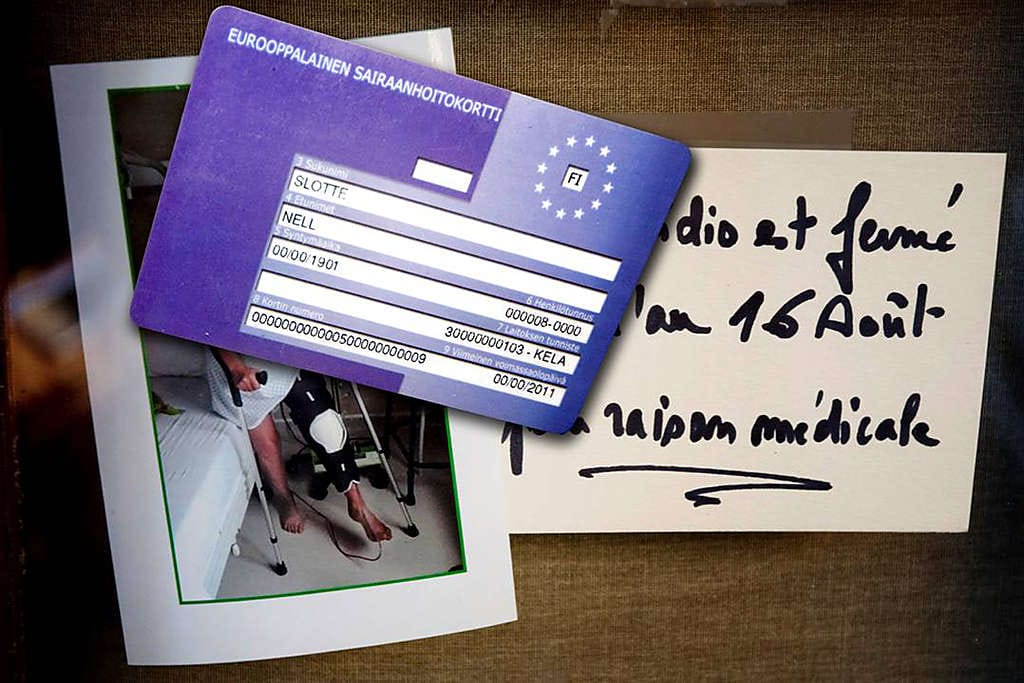 EUROOPPALAINEN SAIRAANHOITOKORTTI
FI
3 Sukunimi
SLOTTE
4 Etunimet
NELL
5 Syntymäaika
00/00/1901
6 Henkilötunnus
000008-0000
7 Laitoksen tunniste
30000000103 - KELA
8 Kortin numero
00000000000500000000009
9 Viimeinen voimassaolopäivä
00/00/2011
dio est fermé
'au 16 Août
raison médicale